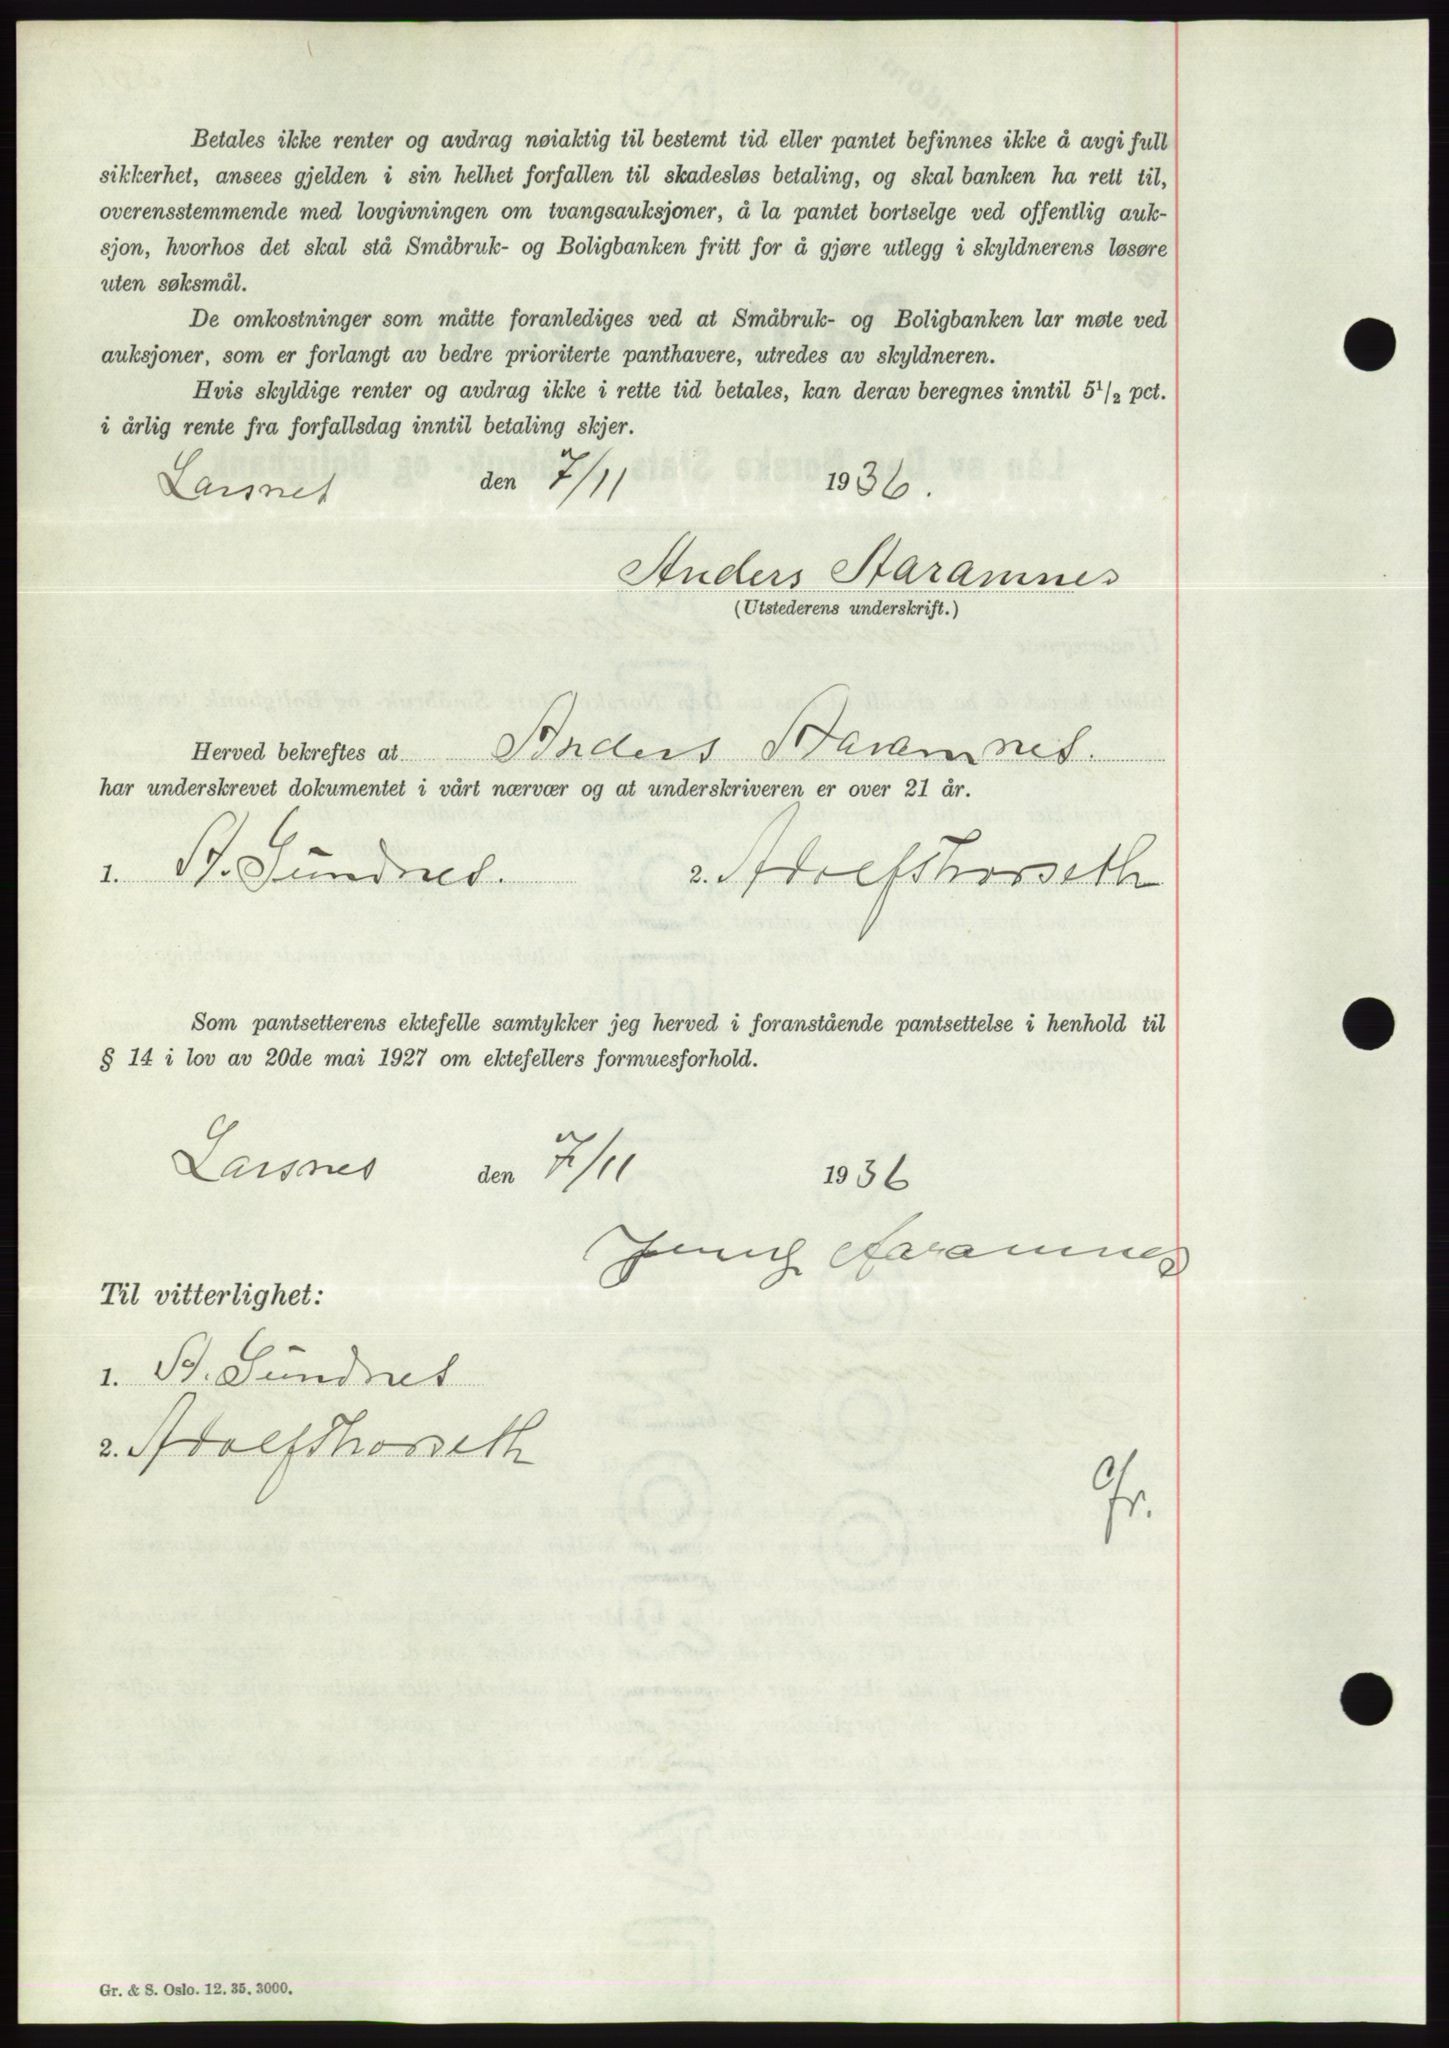 Betales ikke renter og avdrag nøiaktig til bestemt tid eller pantet befinnes ikke å avgi full
sikkerhet, ansees gjelden i sin helhet forfallen til skadesløs betaling, og skal banken ha rett til,
overensstemmende med lovgivningen om tvangsauksjoner, å la pantet bortselge ved offentlig auk-
sjon, hvorhos det skal stå Småbruk- og Boligbanken fritt for å gjøre utlegg i skyldnerens løsøre
uten søksmål.
De omkostninger som måtte foranlediges ved at Småbruk- og Boligbanken lar møte ved
auksjoner, som er forlangt av bedre prioriterte panthavere, utredes av skyldneren.
Hvis skyldige renter og avdrag ikke i rette tid betales, kan derav beregnes inntil 5 1/2 pct.
i årlig rente fra forfallsdag inntil betaling skjer.
Larsnes den 7/11 1936.
Anders Aaramnes
(Utstederens underskrift.)
Herved bekreftes at Anders Aaramnes.
har underskrevet dokumentet i vårt nærvær og at underskriveren er over 21 år.
1. A. Sundnes. 2. Adolf Thorseth
Som pantsetterens ektefelle samtykker jeg herved i foranstående pantsettelse i henhold til
§ 14 i lov av 20de mai 1927 om ektefellers formuesforhold.
Larsnes den 7/11 1936
Jenny Aaramnes
Til vitterlighet:
1. A. Sundnes
2. Adolf Thorseth
Gr. & S. Oslo. 12. 35. 3000.